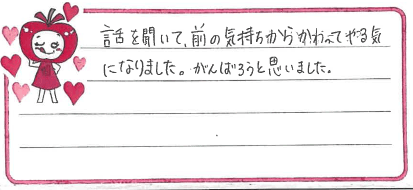 話を聞いて、前の気持ちからかわってやる気
になりました。がんばろうと思いました。